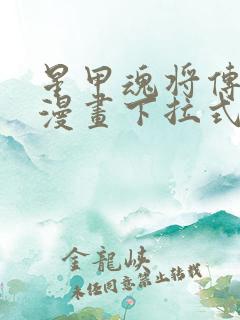 星甲魂将傳
漫畫下拉式
金龍峽
未经同意禁止转载